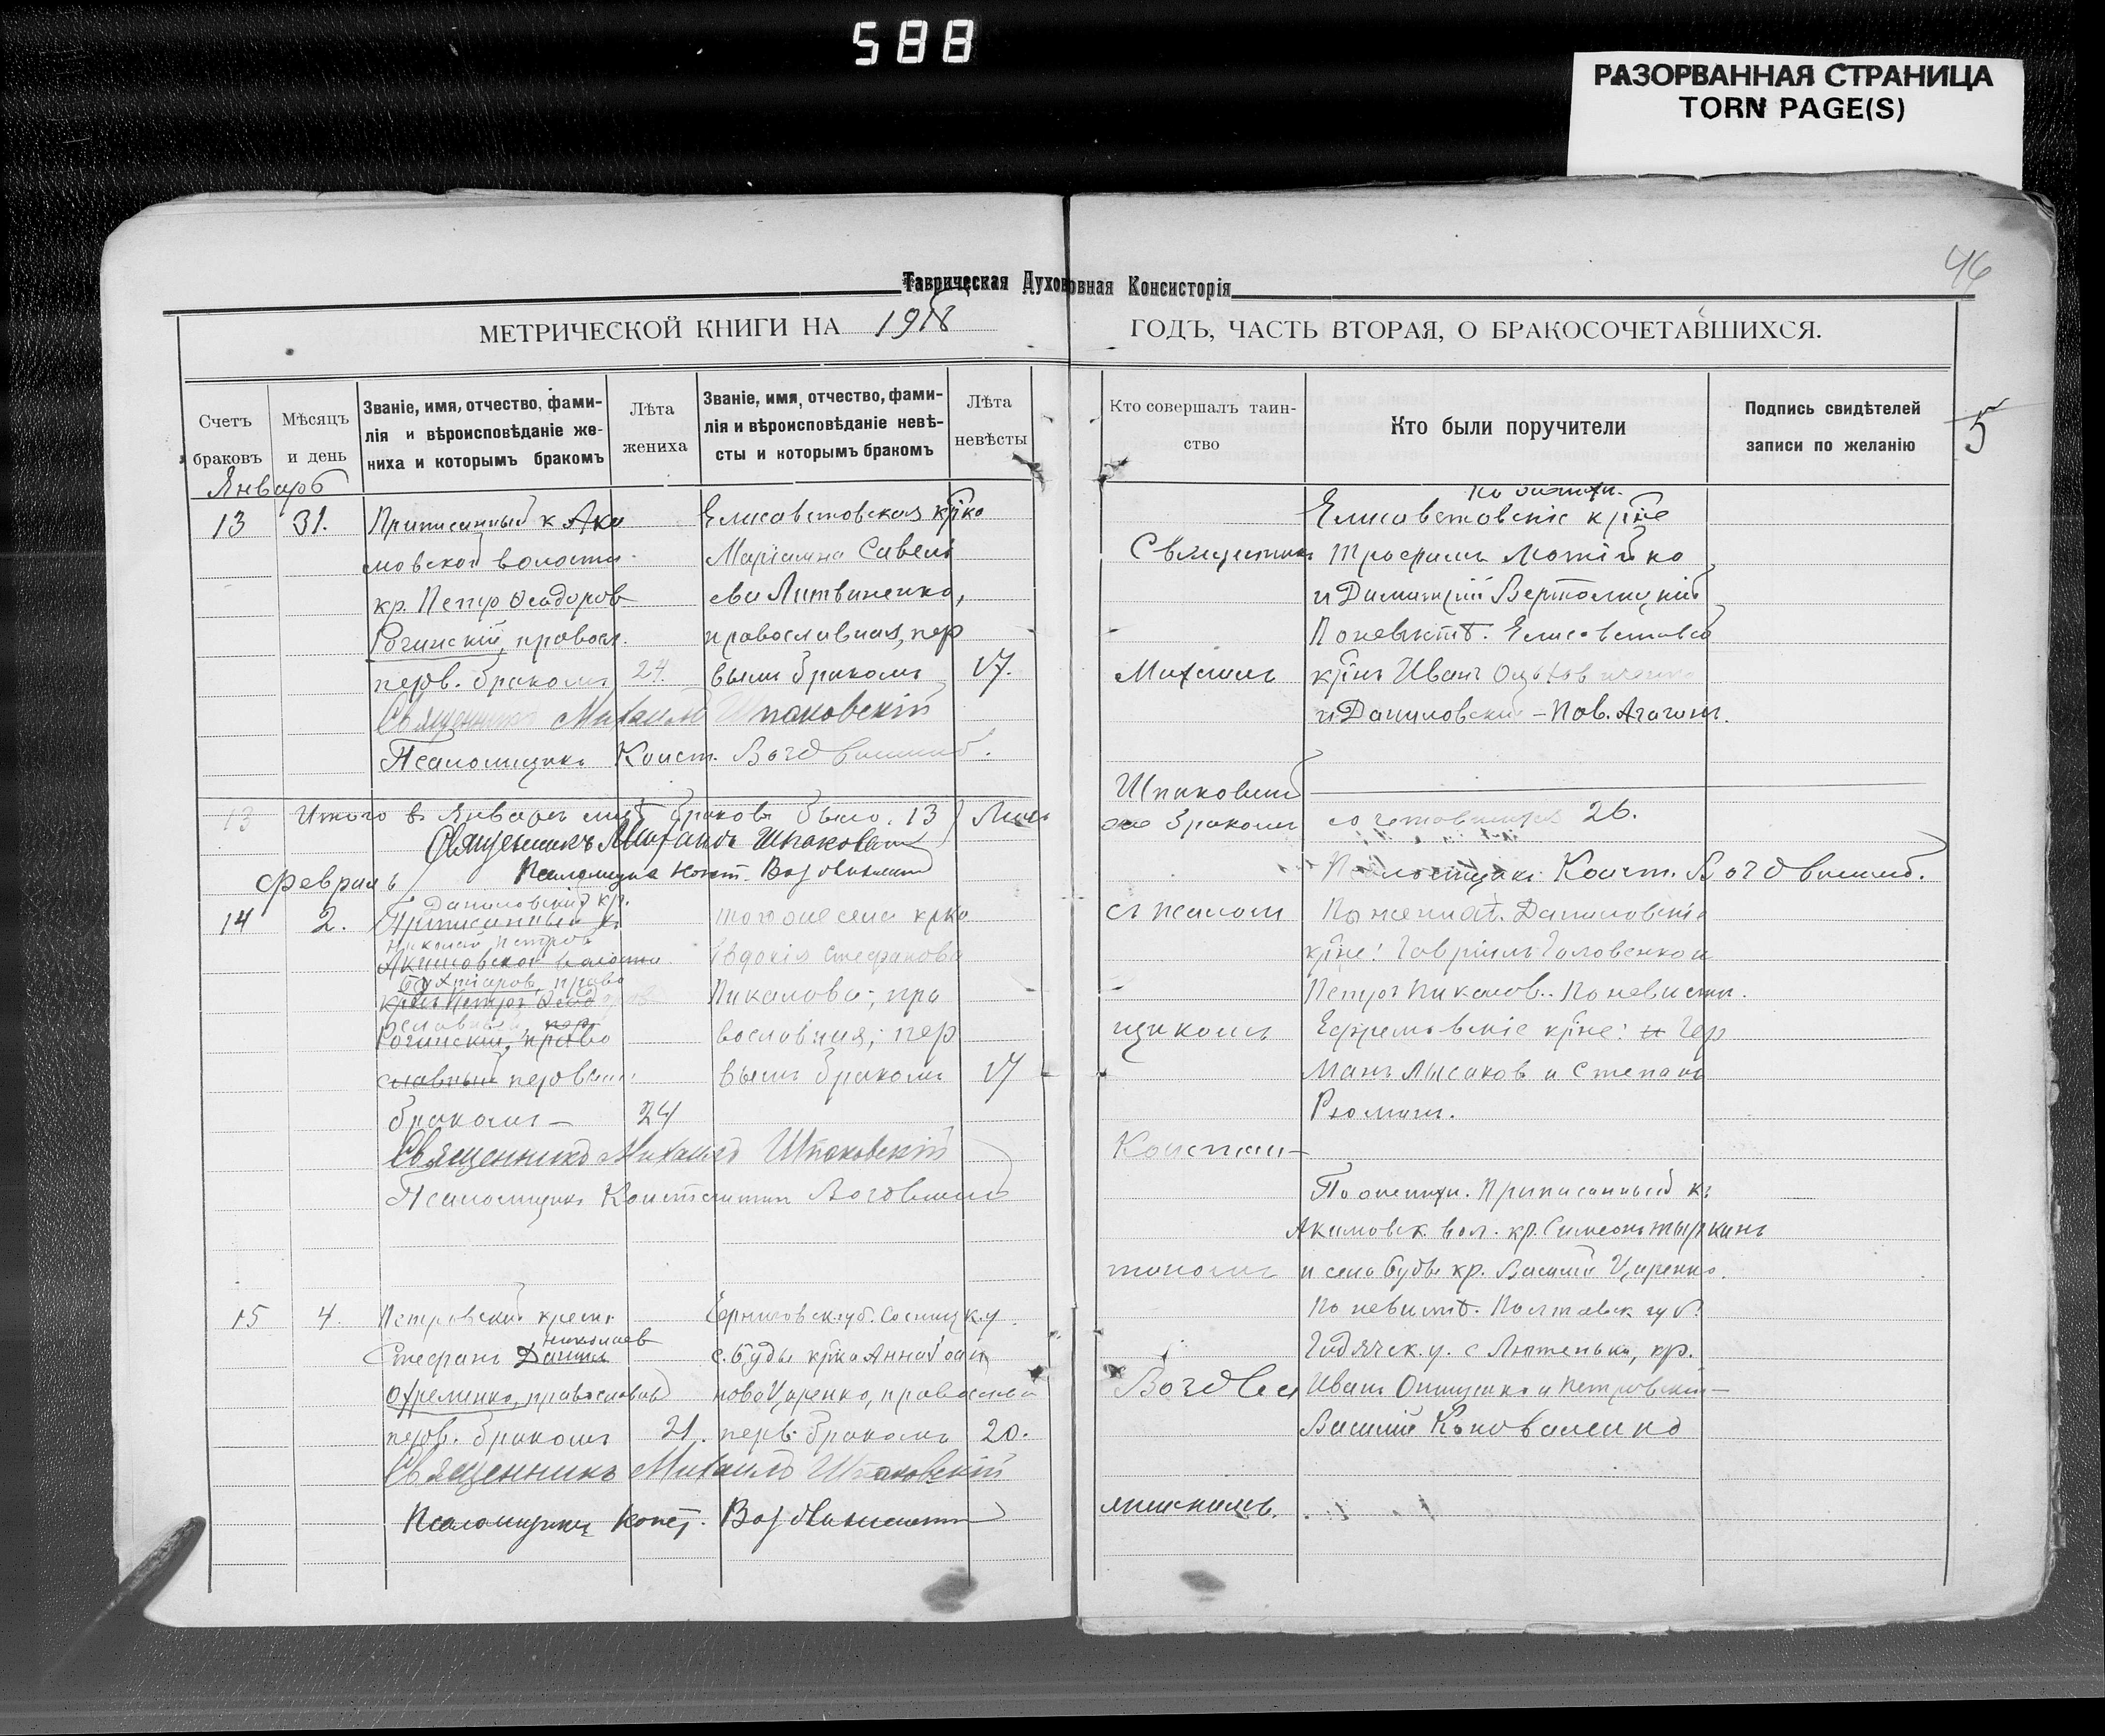 588
РАЗОРВАННАЯ СТРАНИЦА
TORN PAGE(S)
46
Таврическая Духовная Консисторія
МЕТРИЧЕСКОЙ КНИГИ НА 1918 ГОДЪ, ЧАСТЬ ВТОРАЯ, О БРАКОСОЧЕТАВШИХСЯ.
5
Счетъ браковъ
Мѣсяцъ и день
Званіе, имя, отчество, фами-
лія и вѣроисповѣданіе же-
ниха и которымъ бракомъ
Лѣта жениха
Званіе, имя, отчество, фами-
лія и вѣроисповѣданіе невѣ-
сты и которымъ бракомъ
Лѣта невѣсты
Кто совершалъ таин-
ство
Кто были поручители
Подпись свидѣтелей
записи по желанію
Январь
13
31.
Приписанный к Аки
мовской волости
кр. Петр Феодоров
Рогинскій, правосл.
перв. браком
24.
Елисаветовская крка
Маріамна Савель
ева Литвиненко,
православная, пер
вым браком
17.
Елисаветовскіе кріне
Трофим
и Димитрій
По невѣстѣ. Елисаветовскій
крінъ Иванъ
и Даниловский
Священник
Михаил
Шпаковский
Священникъ Михаилъ Шпаковскій
Псаломщикъ Конст.
13
Итого в Январѣ мцѣ браков было 13
браком сочетавшихся 26.
Священникъ Михаилъ Шпаковскій
Псаломщикъ Конст.
Псаломщикъ Конст.
Февраль
14
2.
Даниловский кр.
Приписанный к
Николай Петров
Акимовской волости
право
крінъ Петръ
Рогинский, право
славный первым
браком
24
того же села крка
Евдокія Стефанова
Пикалова, пра
вославная, пер
вым браком
17
с псалом
щиком
Констан-
тином
По женихѣ. Даниловскіе
кріне: Гавріилъ Головенко и
Петръ Пикалов. По невѣстѣ.
Ефремовскіе кріне: и Гер
манъ Лысаков и Степанъ
Рюмин.
Священникъ Михаилъ Шпаковскій
Псаломщикъ Константин
15
4.
Петровский крест.
Николаев
Стефанъ Данил
Охременко, православный
перв. браком
21.
Черниговск. губ. Сосницк. у.
с. Буды крка Анна
нова Царенко, православн
перв. браком
20.
По женихѣ. Приписанный къ
Акимовск. вол. кр. Симеонъ Тыркинъ
и села Буды кр. Василий Царенко.
По невѣстѣ. Полтавск. губ.
Гадячск. у. с. Лютенька, кр.
Иванъ Онищенко и Петровский
Василий Коноваленко
Священникъ Михаилъ Шпаковскій
Псаломщикъ Конст.